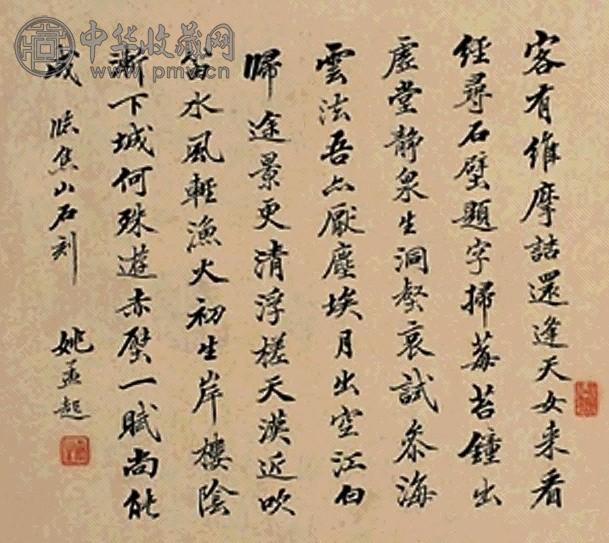 中华收藏网
www.pmv.cn
客有維摩詰還逢天女来看
經尋石壁題字掃莓苔鍾出
虚堂静泉生洞壑哀試參海
雲法吾亦厭塵埃月出空江白
歸途景更清浮槎天漢近吹
笛水風輕漁火初生岸樓陰
漸下城何殊遊赤壁一賦尚能
成 临焦山石刻 姚孟起